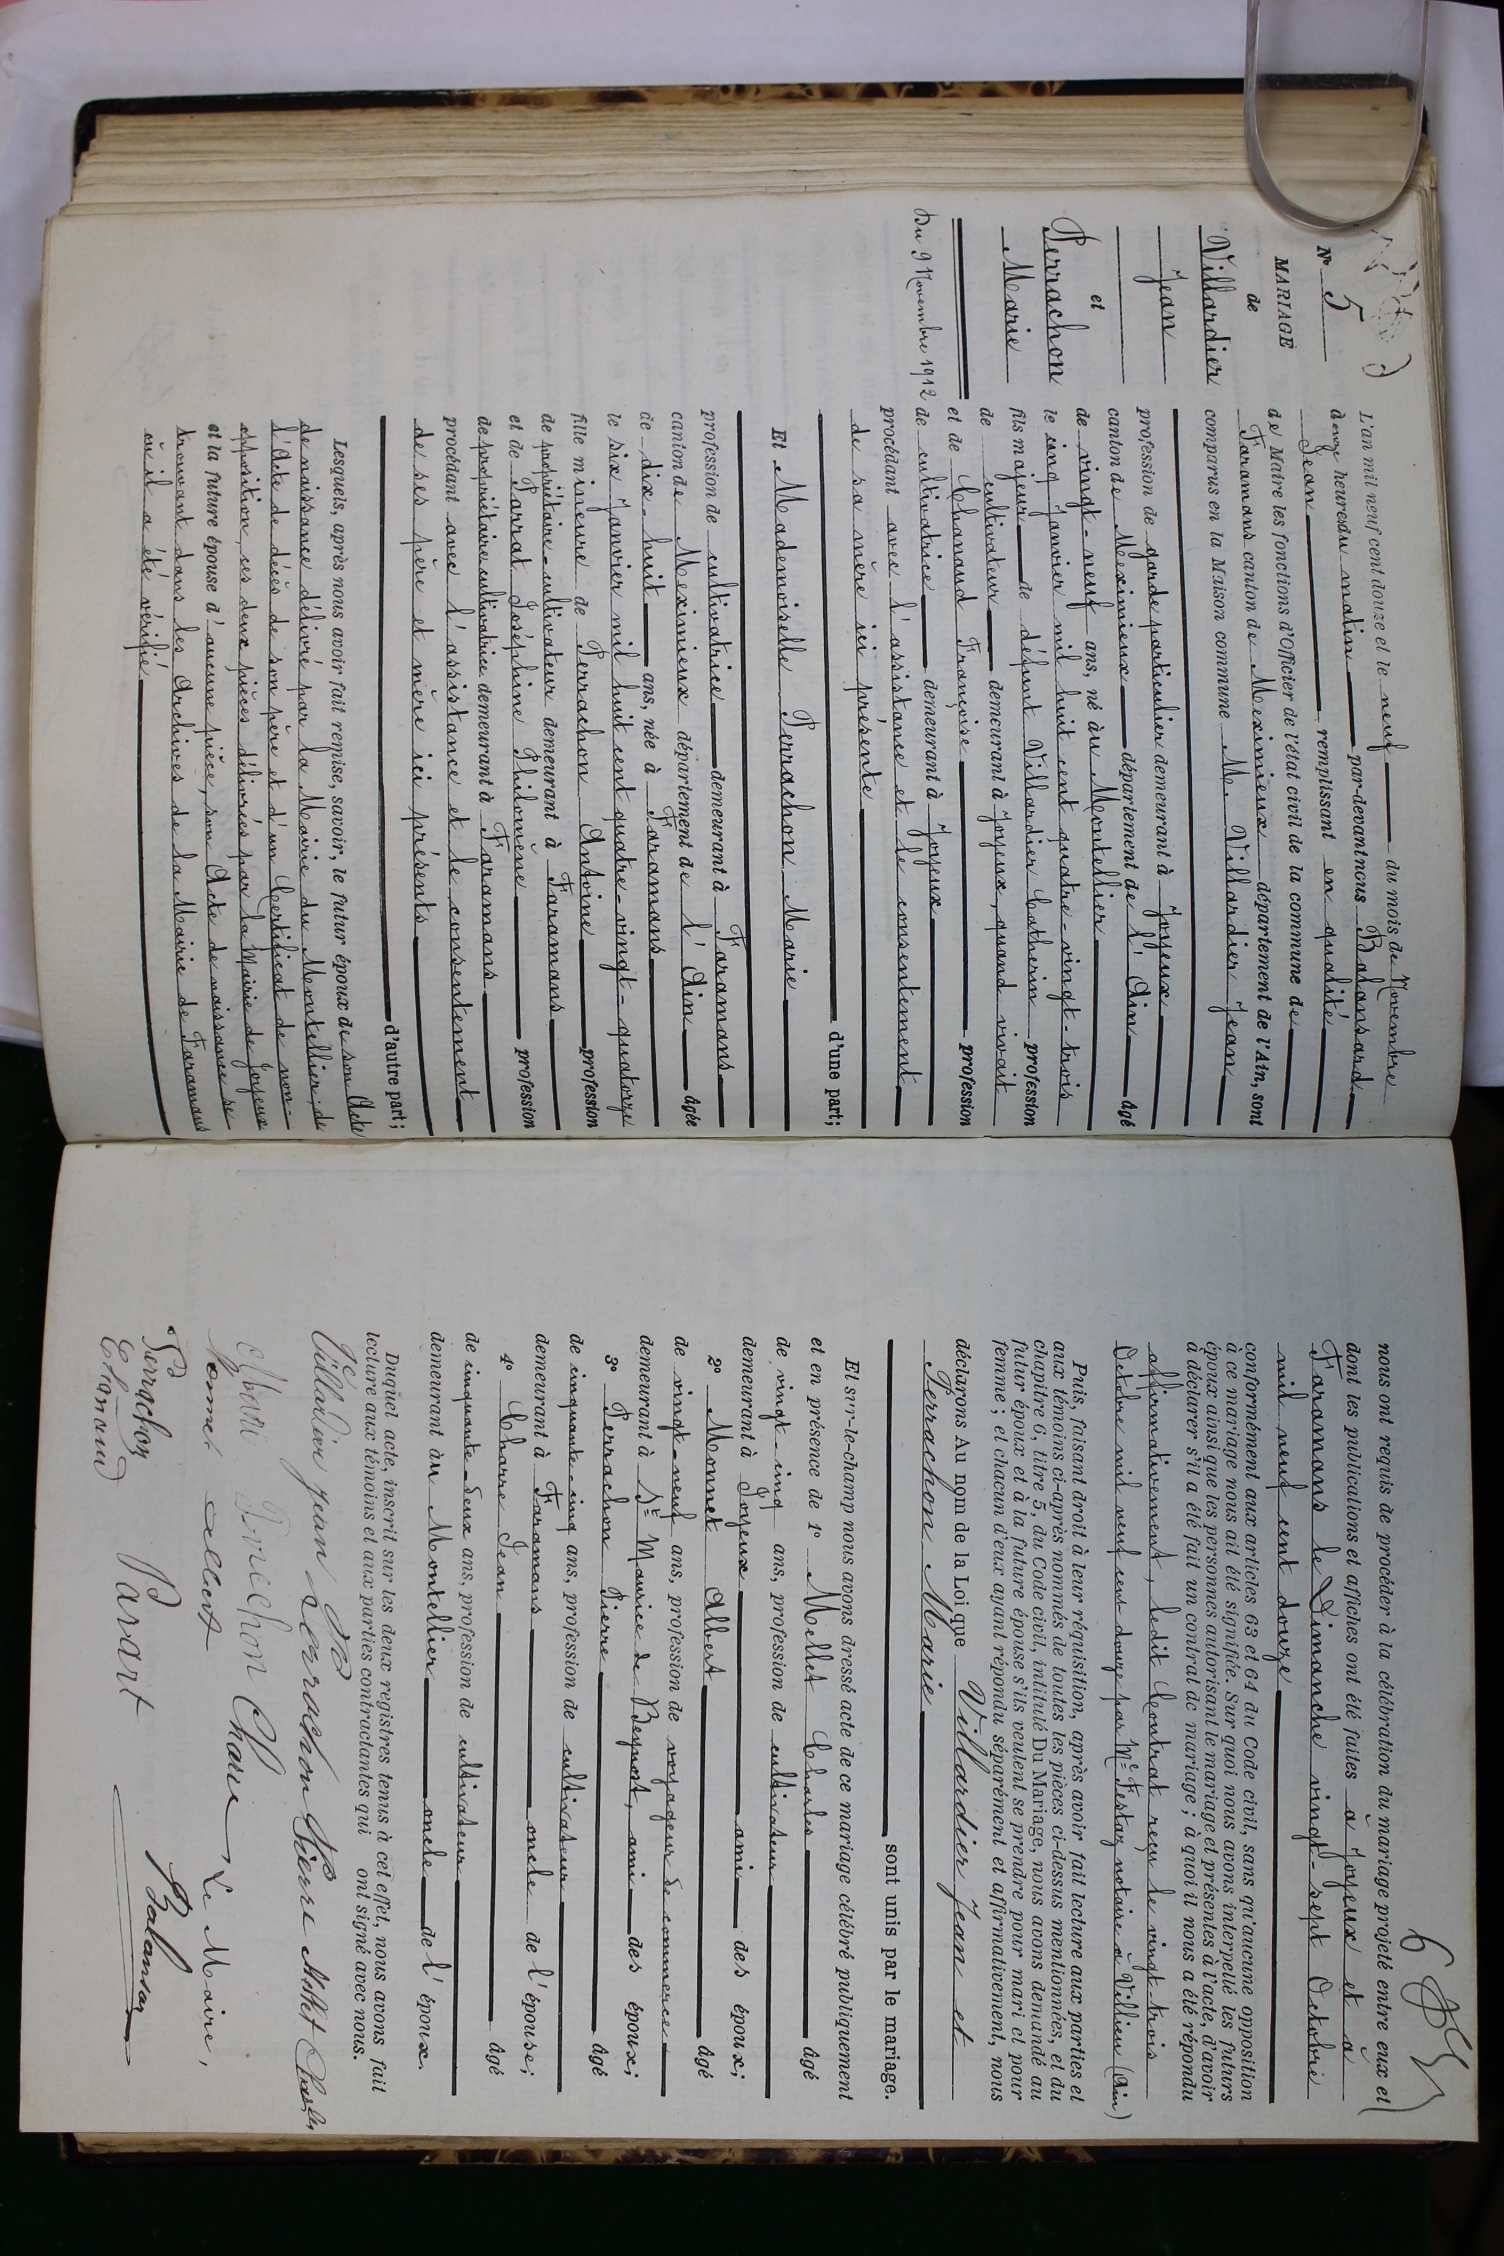 N° 5
MARIAGE
de
Villardier
Jean
et
Perrachon
Marie
Du 9 Novembre 1912
L'an mil neuf cent douze et le neuf du mois de Novembre
à onze heures du matin par-devant nous Balansard
Jean remplissant en qualité
de Maire les fonctions d'Officier de l'état civil de la commune de
Faramans canton de Meximieux département de l'Ain, sont
comparus en la Maison commune M. Villardier Jean
profession de garde particulier demeurant à Joyeux
canton de Meximieux département de l'Ain âgé
de vingt-neuf ans, né au Montellier
le cinq Janvier mil huit cent quatre-vingt-trois
fils majeur de défunt Villardier Catherin profession
de cultivateur demeurant à Joyeux, quand vivait
et de Chanaud Françoise profession
de cultivatrice demeurant à Joyeux
procédant avec l'assistance et le consentement
de sa mère ici présente
d'une part;
Et Mademoiselle Perrachon Marie
profession de cultivatrice demeurant à Faramans
canton de Meximieux département de l'Ain âgée
de dix-huit ans, née à Faramans
le six Janvier mil huit cent quatre-vingt-quatorze
fille mineure de Perrachon Antoine profession
de propriétaire-cultivateur demeurant à Faramans
et de Parrat Joséphine Philomène profession
de propriétaire cultivatrice demeurant à Faramans
procédant avec l'assistance et le consentement
de ses père et mère ici présents
d'autre part;
Lesquels, après nous avoir fait remise, savoir, le futur époux de son Acte
de naissance délivré par la Mairie du Montellier, de
l'Acte de décès de son père et d'un Certificat de non-
opposition, ces deux pièces délivrées par la Mairie de Joyeux
et la future épouse d'aucune pièce, son Acte de naissance se
trouvant dans les Archives de la Mairie de Faramans
où il a été vérifié
6
nous ont requis de procéder à la célébration du mariage projeté entre eux et
dont les publications et affiches ont été faites à Joyeux et à
Faramans le Dimanche vingt-sept Octobre
mil neuf cent douze
conformément aux articles 63 et 64 du Code civil, sans qu'aucune opposition
à ce mariage nous ait été signifiée. Sur quoi nous avons interpellé les futurs
époux ainsi que les personnes autorisant le mariage et présentes à l'acte, d'avoir
à déclarer s'il a été fait un contrat de mariage; à quoi il nous a été répondu
affirmativement, ledit Contrat reçu le vingt-trois
Octobre mil neuf cent douze par Me Festaz notaire à Villieu (Ain)
Puis, faisant droit à leur réquisition, après avoir fait lecture aux parties et
aux témoins ci-après nommés de toutes les pièces ci-dessus mentionnées, et du
chapitre 6, titre 5, du Code civil, intitulé Du Mariage, nous avons demandé au
futur époux et à la future épouse s'ils veulent se prendre pour mari et pour
femme; et chacun d'eux ayant répondu séparément et affirmativement, nous
déclarons Au nom de la Loi que Villardier Jean et
Perrachon Marie
sont unis par le mariage.
Et sur-le-champ nous avons dressé acte de ce mariage célébré publiquement
et en présence de 1° Mellet Charles âgé
de vingt-cinq ans, profession de cultivateur
demeurant à Joyeux ami des époux;
2° Monnet Albert âgé
de vingt-neuf ans, profession de voyageur de commerce
demeurant à St Maurice de Beynost, ami des époux;
3° Perrachon Pierre âgé
de cinquante-cinq ans, profession de cultivateur
demeurant à Faramans oncle de l'épouse;
4° Charre Jean âgé
de cinquante-deux ans, profession de cultivateur
demeurant au Montellier oncle de l'époux.
Duquel acte, inscrit sur les deux registres tenus à cet effet, nous avons fait
lecture aux témoins et aux parties contractantes qui ont signé avec nous.
Villardier jean Perrachon Pierre Mellet Charles
Marie Perrachon Charre Le Maire,
Monnet Albert
Perrachon Parrat Balansard
Chanaud